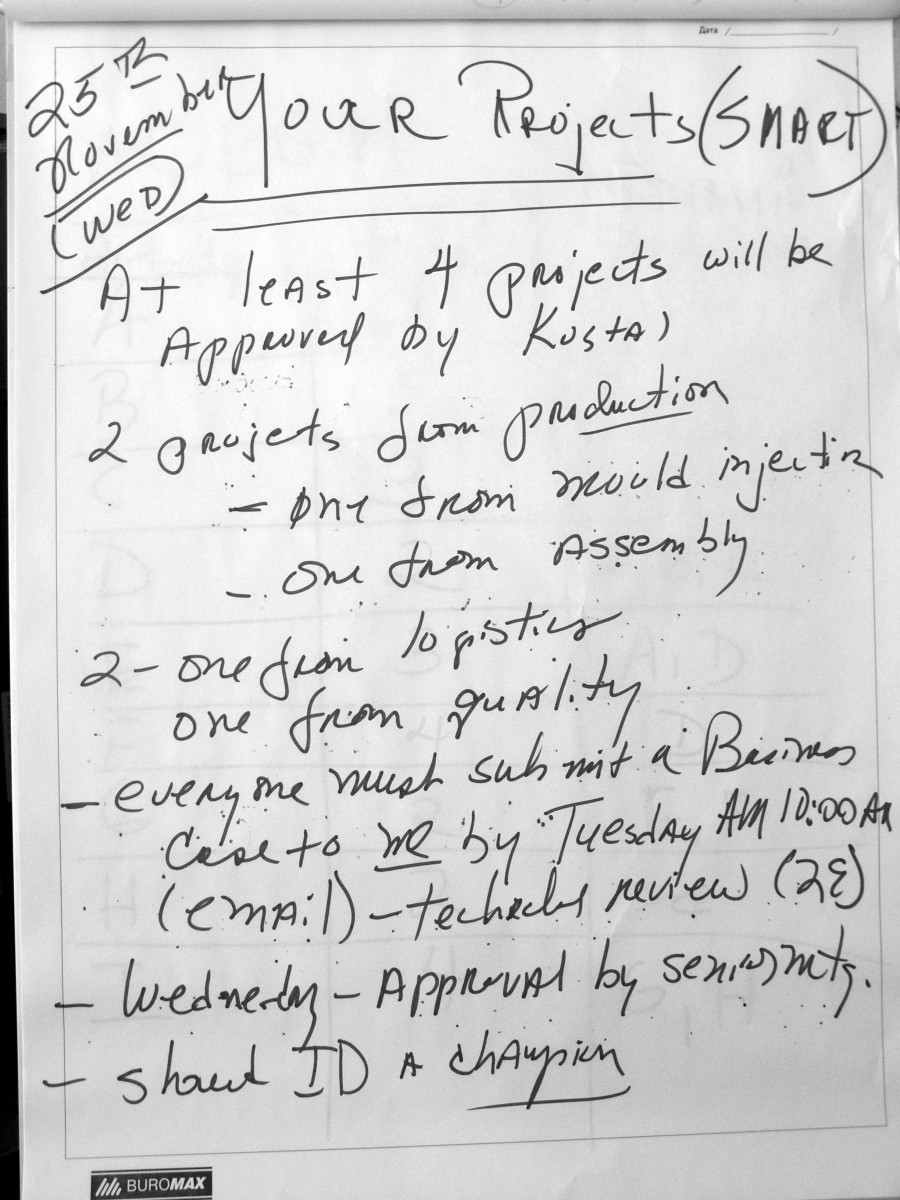 Дата / /
25th November (WED)
Your Projects (SMART)
At least 4 projects will be
Approved by Kostal
2 projets from production
- one from mould injection
- one from Assembly
2 - one from logistics
one from quality
- everyone must submit a Business
Case to me by Tuesday AM 10:00 AM
(email) - technical review (2E)
- Wednesday - Approval by senior mtg.
- should ID a champion
BUROMAX